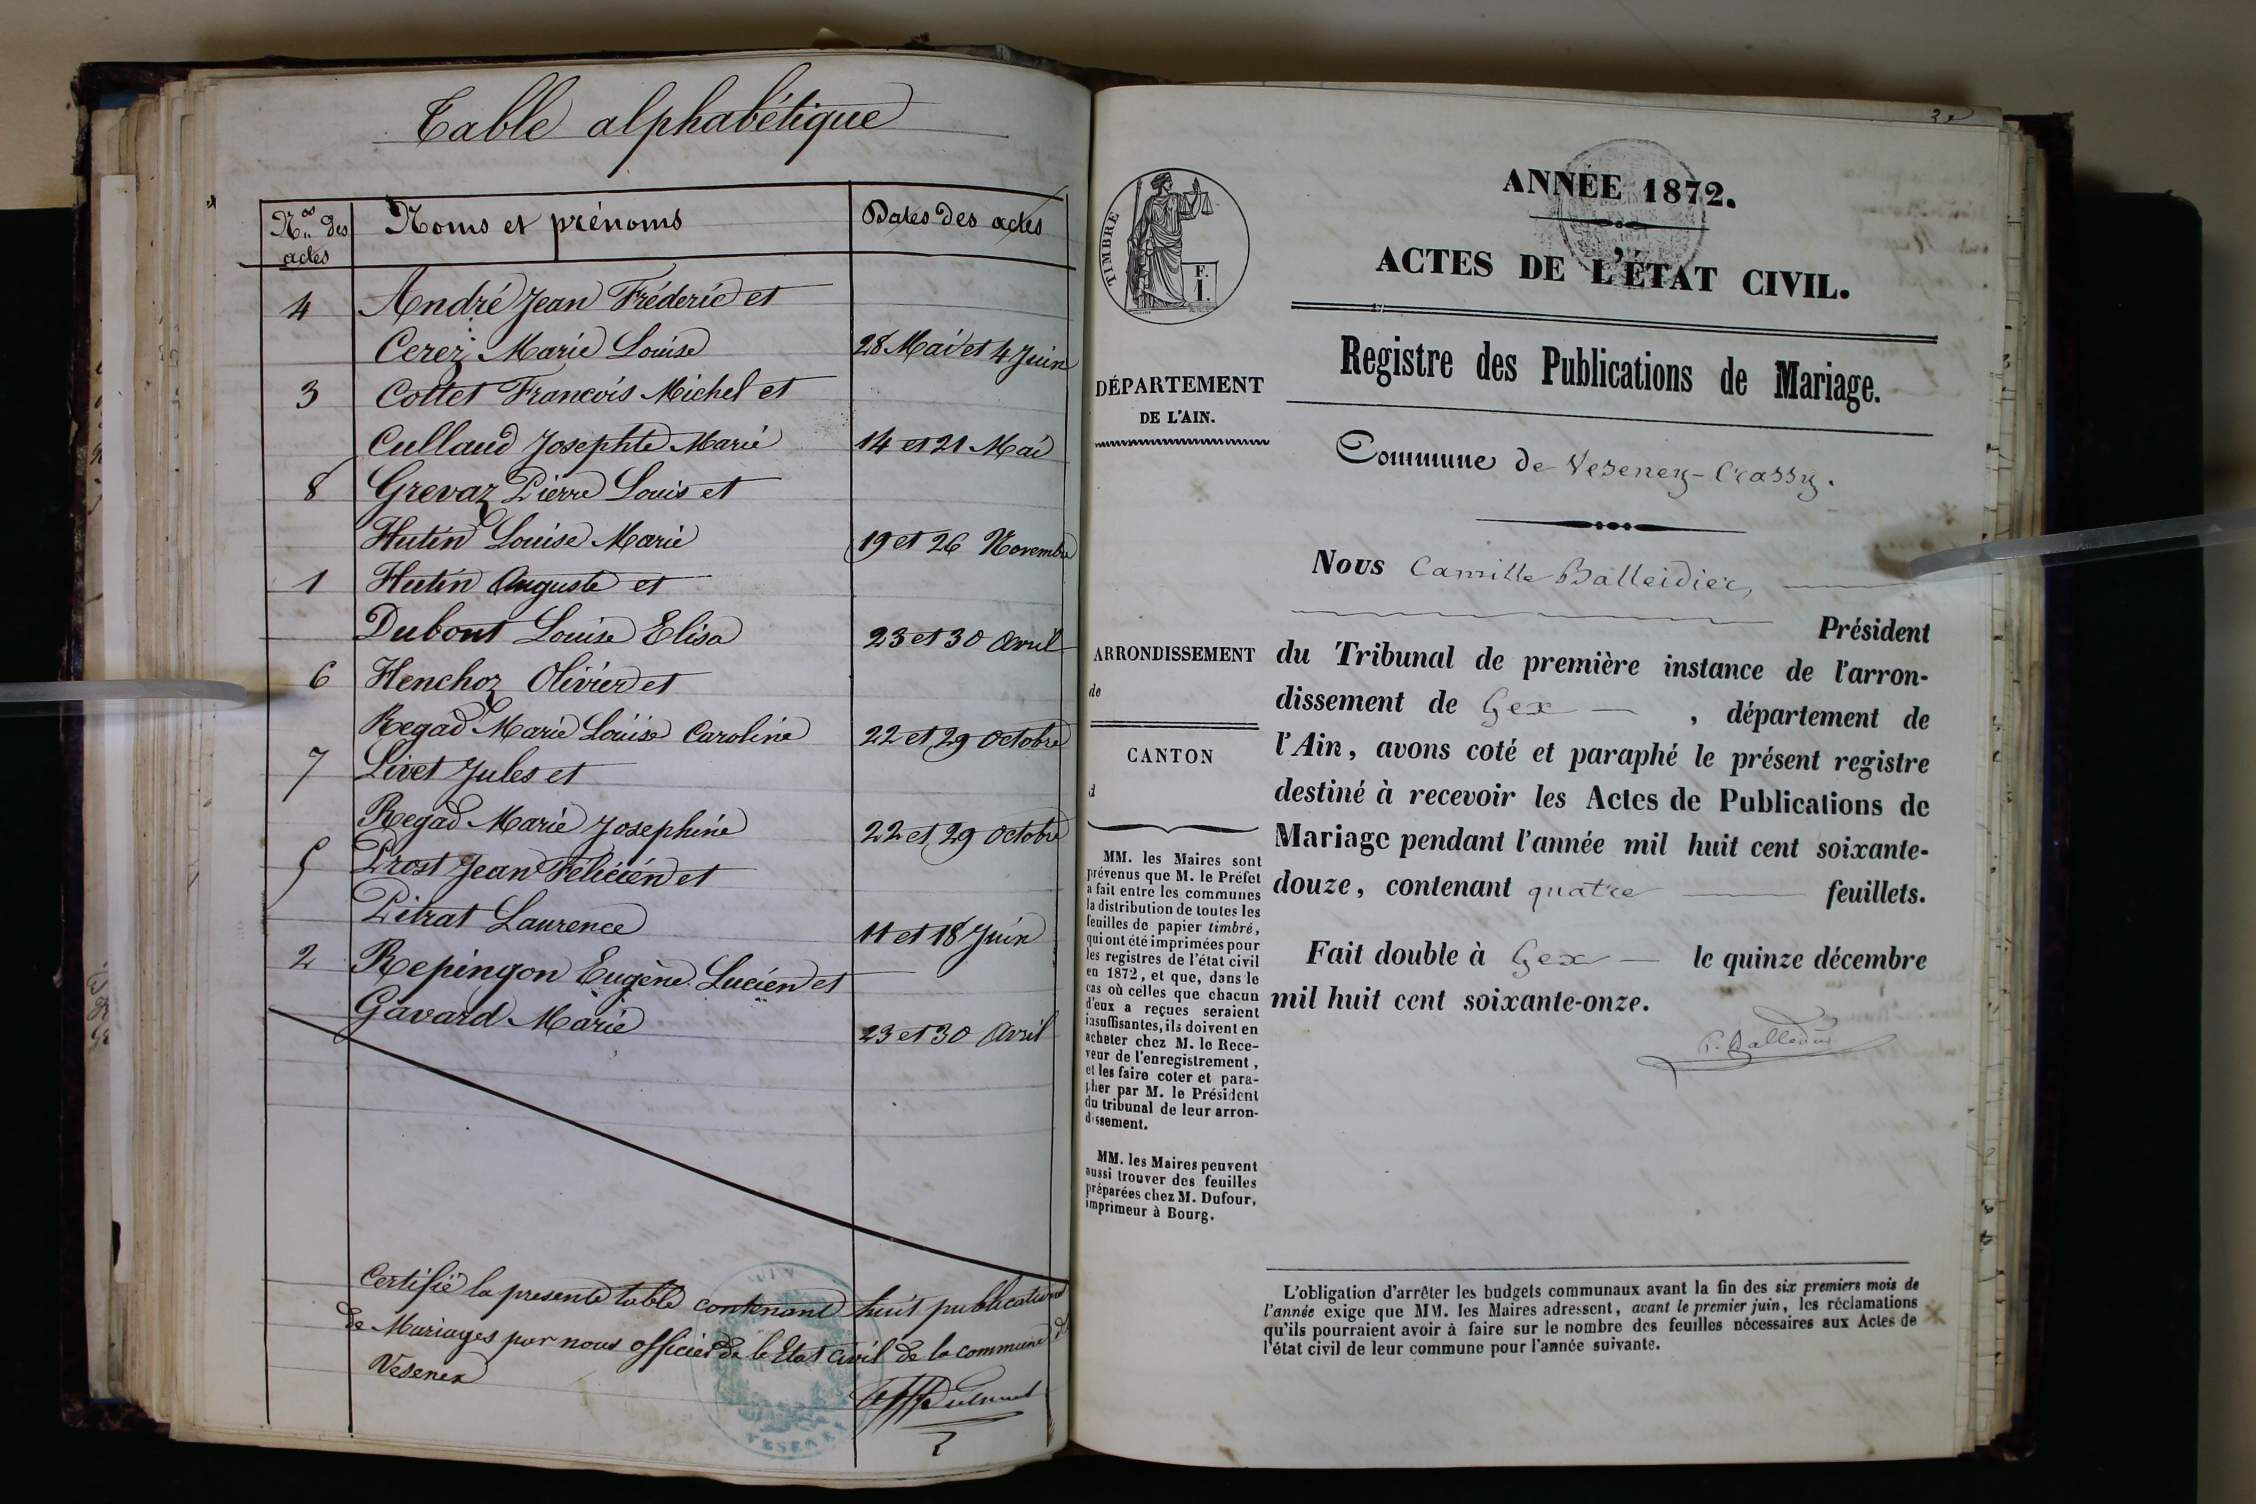 Table alphabétique
Nos des actes
Noms et prénoms
Dates des actes
4 André Jean Fréderic et
Cerez Marie Louise 28 Mai et 4 Juin
3 Cottet Francois Michel et
Cullaud Josephte Marie 14 et 21 Mai
8 Grevaz Pierre Louis et
Hutin Louise Marie 19 et 26 Novembre
1 Hutin Auguste et
Dubout Louise Elisa 23 et 30 Avril
6 Henchoz Olivier et
Regad Marie Louise Caroline 22 et 29 Octobre
7 Livet Jules et
Regad Marie Josephine 22 et 29 Octobre
5 Prost Jean Félicien et
Pitrat Laurence 11 et 18 Juin
2 Repingon Eugène Lucien et
Gavard Marie 23 et 30 Avril
Certifié la presente table contenant huit publications
de Mariages par nous officier de le Etat civil de la commune de
Vesenex
VESENEX
TIMBRE
F.
I.
DÉPARTEMENT
DE L'AIN.
ARRONDISSEMENT
de
CANTON
d
MM. les Maires sont
prévenus que M. le Préfet
a fait entre les communes
la distribution de toutes les
feuilles de papier timbré,
qui ont été imprimées pour
les registres de l'état civil
en 1872, et que, dans le
cas où celles que chacun
d'eux a reçues seraient
insuffisantes, ils doivent en
acheter chez M. le Rece-
veur de l'enregistrement,
et les faire coter et para-
pher par M. le Président
du tribunal de leur arron-
dissement.
MM. les Maires peuvent
aussi trouver des feuilles
préparées chez M. Dufour,
imprimeur à Bourg.
ANNÉE 1872.
ACTES DE L'ÉTAT CIVIL.
Registre des Publications de Mariage.
Commune de Veseney-Crassy.
Nous Camille Balleidier,
Président
du Tribunal de première instance de l'arron-
dissement de Gex , département de
l'Ain, avons coté et paraphé le présent registre
destiné à recevoir les Actes de Publications de
Mariage pendant l'année mil huit cent soixante-
douze, contenant quatre feuillets.
Fait double à Gex le quinze décembre
mil huit cent soixante-onze.
C. Balleidier
L'obligation d'arrêter les budgets communaux avant la fin des six premiers mois de
l'année exige que MM. les Maires adressent, avant le premier juin, les réclamations
qu'ils pourraient avoir à faire sur le nombre des feuilles nécessaires aux Actes de
l'état civil de leur commune pour l'année suivante.